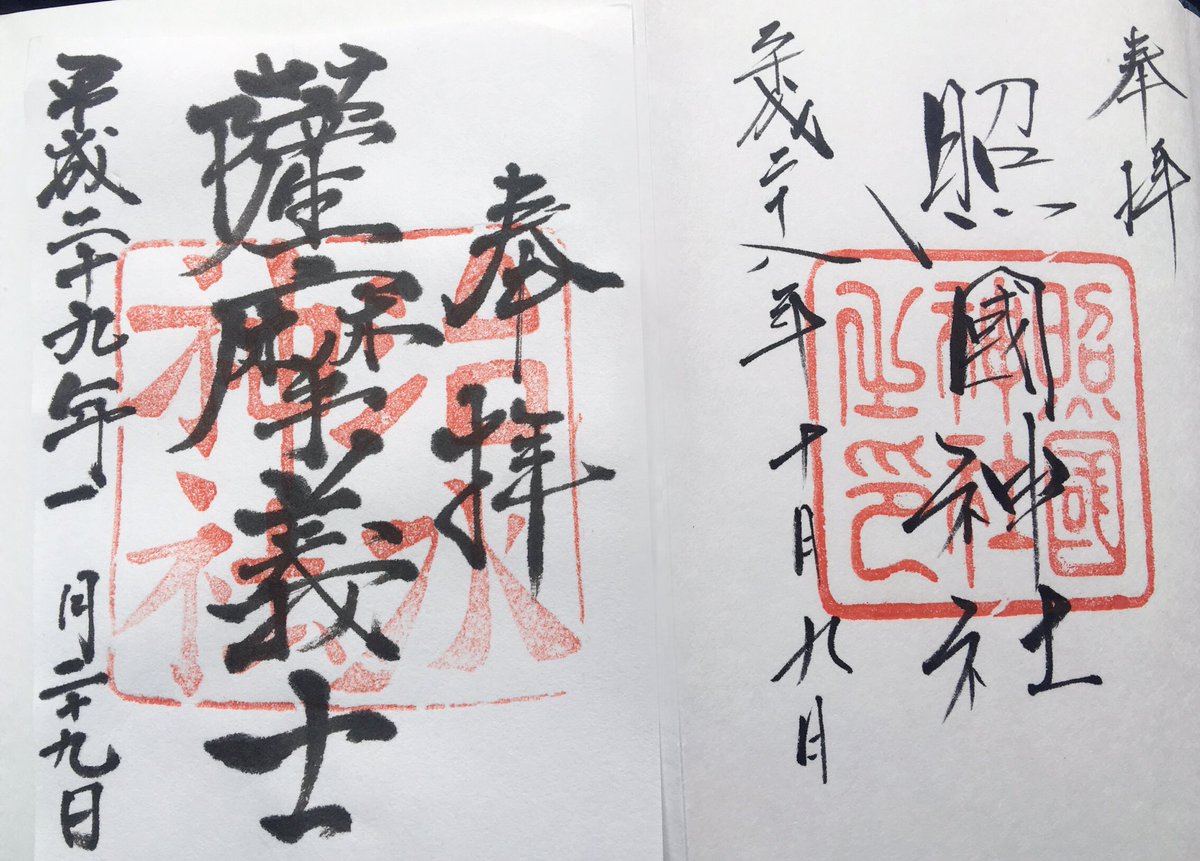 奉拝
照國神社
平成二十八年十月九日
照國
神社
之印
奉拝
薩摩義士
平成二十九年一月二十九日
治水
神社